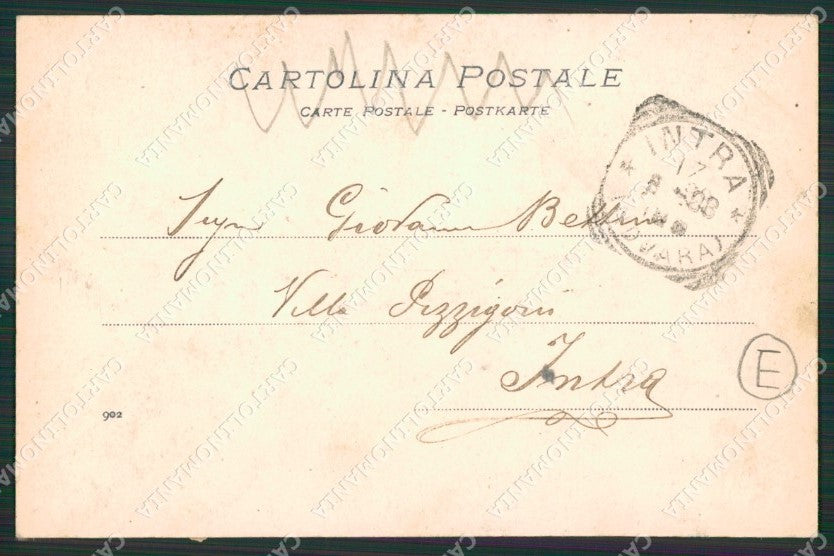 CARTOLINA POSTALE
CARTE POSTALE - POSTKARTE
INTRA
17
08
(NOVARA)
Sign Giovanni Bettini
Villa Pizzigoni
Intra
E
902
CARTOLINOMANIA